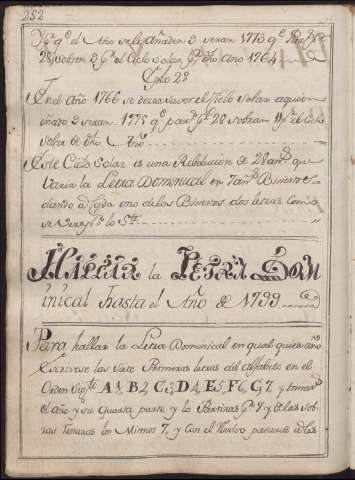 252
q.e el Año se le Añaden 9 seran 1773 q.e Part.s p.r
28 sobran 9 p.r el Ciclo Solar p.a dho Ano 1764
Explo 2º
En el Año 1766 se desea saver el Ciclo Solar aquien
añado 9 seran 1775 q.e part.s p.r 28 sobran 11 p.r el Ciclo
Solar de dho Año
Este Ciclo Solar es una Rebolucion de 28 an.s que
Varia la Letra Dominical en 7 an.s Bisiestos
dando a Cada uno de los Bisiestos dos letras como
se Vera p.r lo Sig.te
HALLAR la LETRA DOM
inical hasta el Año de 1799
Para hallar la Letra Dominical en qual quier año
Escrivase las Siete Primeras letras del Alfabeto en el
Orden Sig.te A1, B2, C3, D4, E5, F6, G7, y tomar
el Año y su quarta parte y lo Partiras p.r 7 y de las Sob
ras Tomaras los Mismos 7, y Con el Residuo pasaras a las